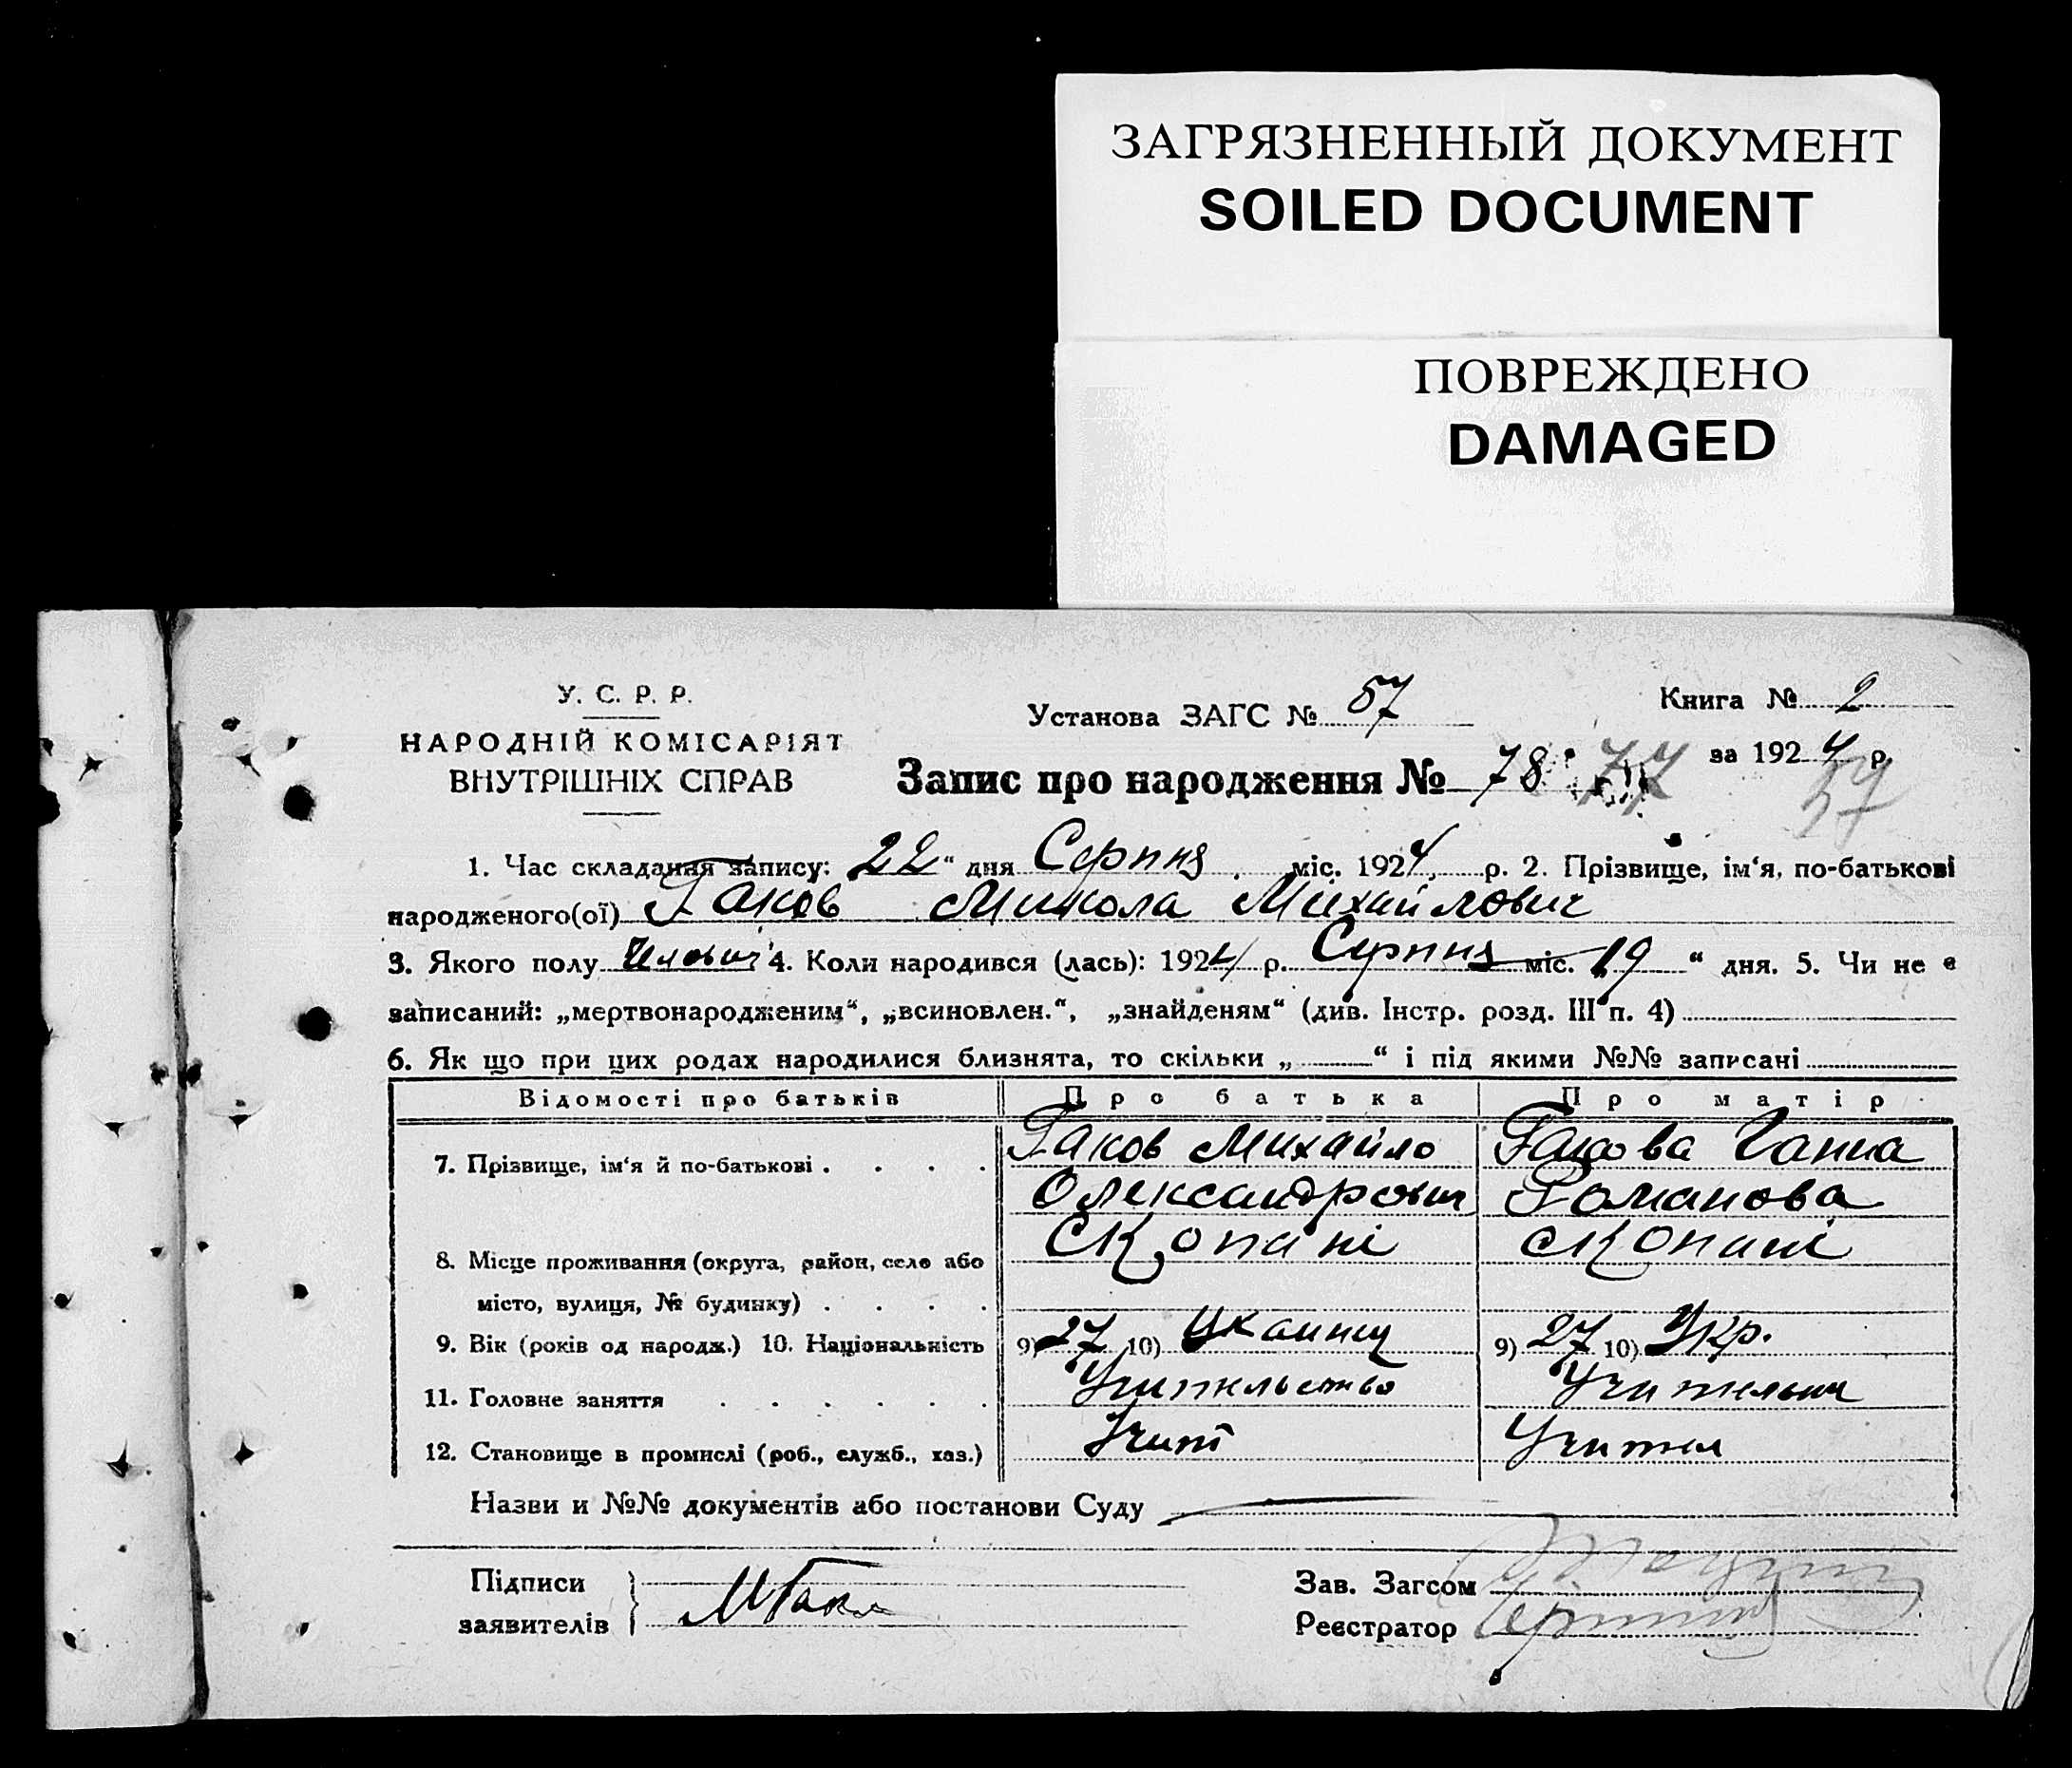 ЗАГРЯЗНЕННЫЙ ДОКУМЕНТ
SOILED DOCUMENT
ПОВРЕЖДЕНО
DAMAGED
У. С. Р. Р.
НАРОДНІЙ КОМІСАРІЯТ
ВНУТРІШНІХ СПРАВ
Установа ЗАГС № 57
Книга № 2
за 1924 р.
Запис про народження № 78 77
57
1. Час складання запису: 22 “ дня Серпня міс. 1924 р. 2. Прізвище, ім‘я, по-батькові
народженого(ої) Гаков Микола Михайлович
3. Якого полу Чловічі 4. Коли народився (лась): 1924 р. Серпня міс. 19 “ дня. 5. Чи не є
записаний: „мертвонародженим“, „всиновлен.“, „знайденям“ (див. Інстр. розд. III п. 4)
6. Як що при цих родах народилися близнята, то скільки „ “ і під якими №№ записані
Відомості про батьків Про батька Про матір
7. Прізвище, ім‘я й по-батькові . . . . Гаков Михайло Гакова Ганна
Олександрович Романова
8. Місце проживання (округа, район, село або с Копані с Копані
місто, вулиця, № будинку) . . . .
9. Вік (років од народж.) 10. Національність 9) 27 10) 9) 27 10) Укр.
11. Головне заняття . . . . . . Учительство
12. Становище в промислі (роб., служб., хаз.) Учит Учител
Назви и №№ документів або постанови Суду
Підписи
заявителів
МГаков
Зав. Загсом
Реєстратор